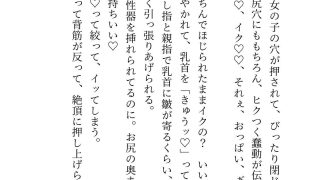 女の子の穴が押されて、ぴったり閉じ
尻穴にももちろん、ヒクつく蠢動が伝
♡、イク♡♡、それぇ、おっぱい、ぎ
ちんでほじられたままイクの？　いい
やかれて、乳首を「きゅうッ♡」って
し指と親指で乳首に皺が寄るくらい、
く引っ張りあげられる。
性器を挿れられてるのに。お尻の奥ま
持ちいい♡
♡って絞って、イッてしまう。
って背筋が反って、絶頂に押し上げら